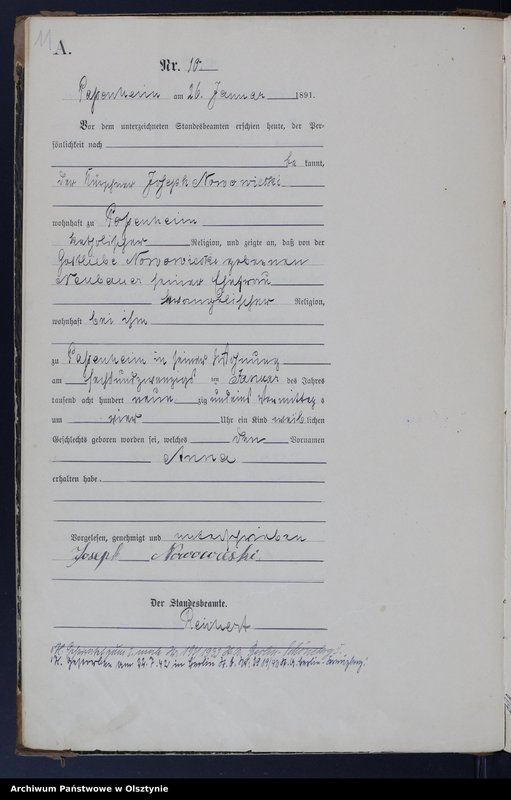 11
A.
Nr. 10
Passenheim am 26. Januar 1891.
Vor dem unterzeichneten Standesbeamten erschien heute, der Per-
sönlichkeit nach
be kannt,
der Kürschner Joseph Nowowieski
wohnhaft zu Passenheim
katholischer Religion, und zeigte an, daß von der
Gottliebe Nowowieski geborenen
Neubauer seiner Ehefrau
evangelischer Religion,
wohnhaft bei ihm
zu Passenheim in seiner Wohnung
am sechsundzwanzigsten Januar des Jahres
tausend acht hundert neunzig und eins Vormittags
um vier Uhr ein Kind weiblichen
Geschlechts geboren worden sei, welches den Vornamen
Anna
erhalten habe.
Vorgelesen, genehmigt und unterschrieben
Joseph Nowowieski.
Der Standesbeamte.
Reichert
Gestorben am 22.7.42 in Berlin Berlin
Archiwum Państwowe w Olsztynie